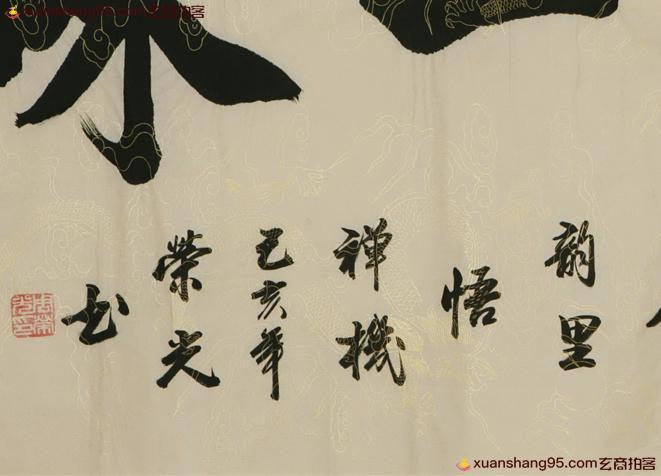 xuanshang95.com玄商拍客
韵里
悟
禅機
己亥年
榮光
书
xuanshang95.com玄商拍客